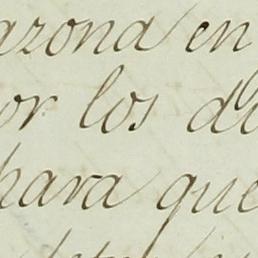 azona en
or los di
para que